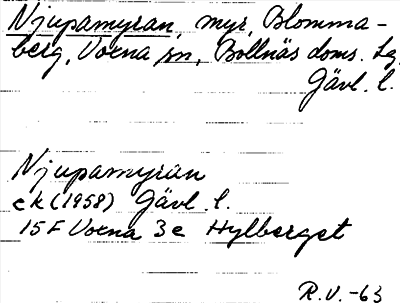 Njupamyran, myr, Blomma-
berg, Voxna sn, Bollnäs doms. lag,
Gävl. l.
Njupamyran
ek (1958) Gävl. l.
15 F Voxna 3 e Hylberget
R.V.-63